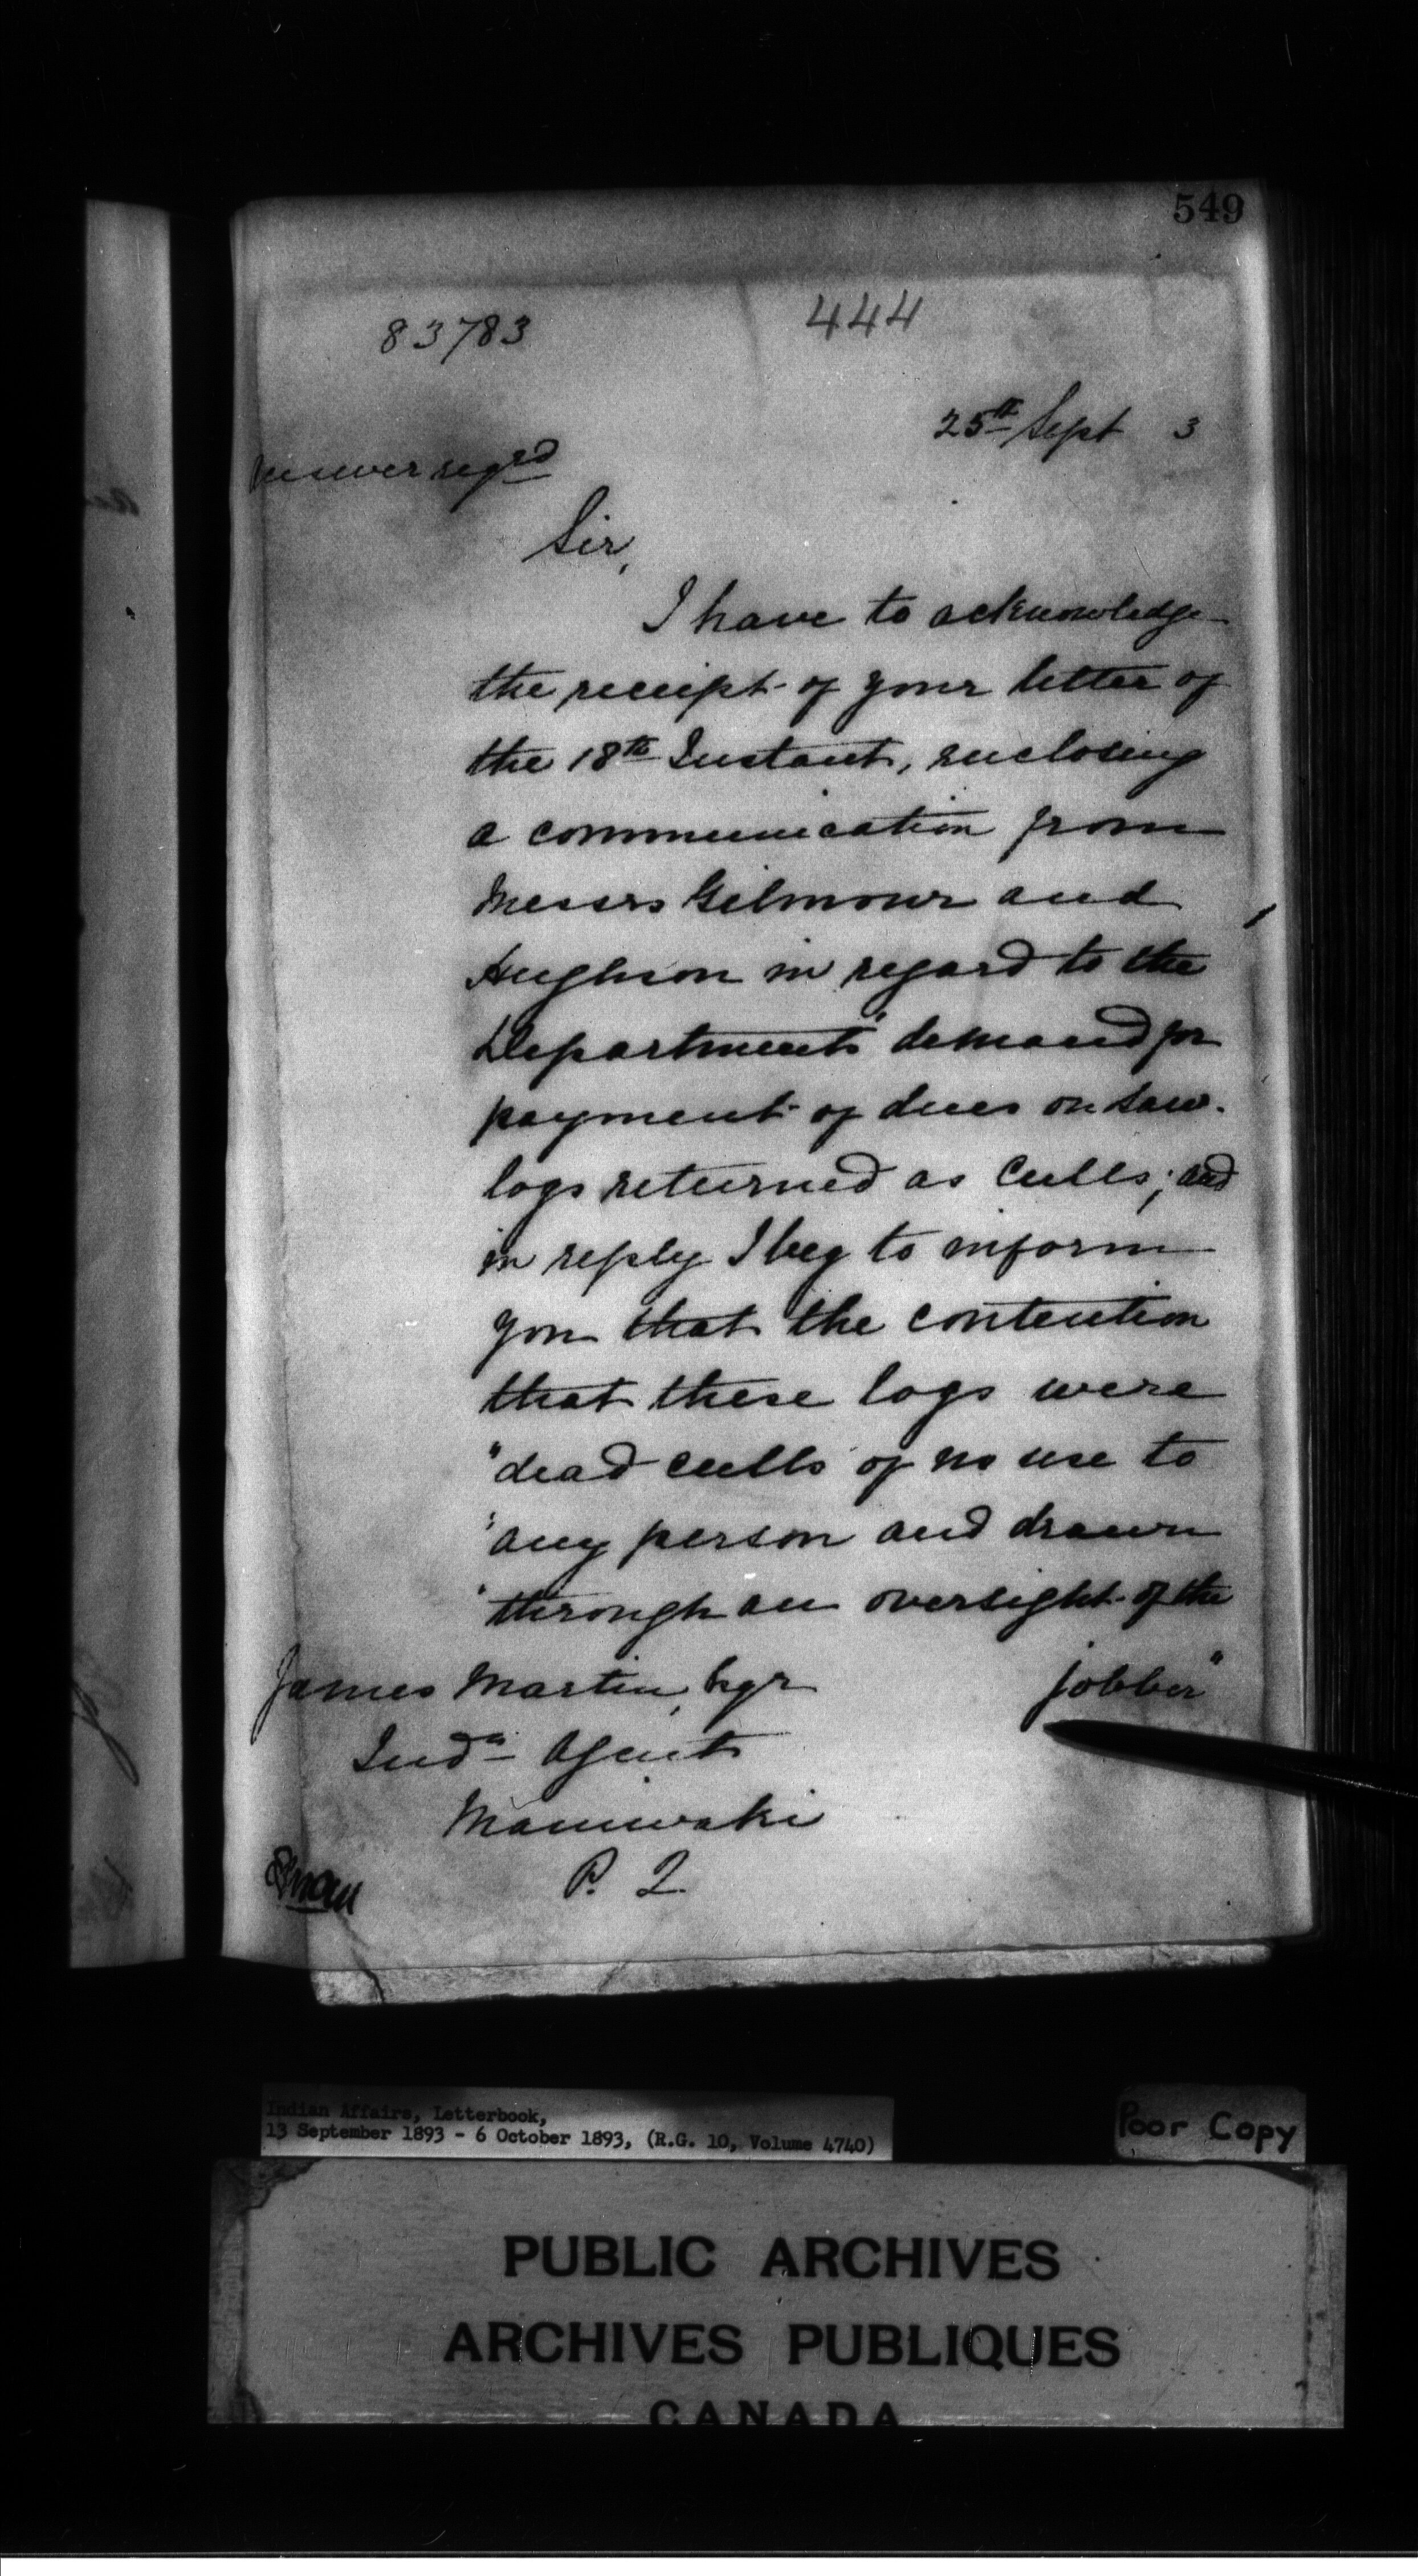 549
444
83783
25th Sept 3
Answer reqrd
Sir,
I have to acknowledge
the receipt of your letter of
the 18th Instant, enclosing
a communication from
Messrs Gilmour and
Hughson in regard to the
Department's demand for
payment of dues on saw-
logs returned as Culls; and
in reply I beg to inform
you that the contention
that these logs were
"dead culls of no use to
"any person and drawn
"through an oversight of the
jobber"
James Martin, Esqr
Indn Agent
Maniwaki
P. Q.
Indian Affairs, Letterbook,
13 September 1893 - 6 October 1893, (R.G. 10, Volume 4740)
Poor Copy
PUBLIC ARCHIVES
ARCHIVES PUBLIQUES
CANADA